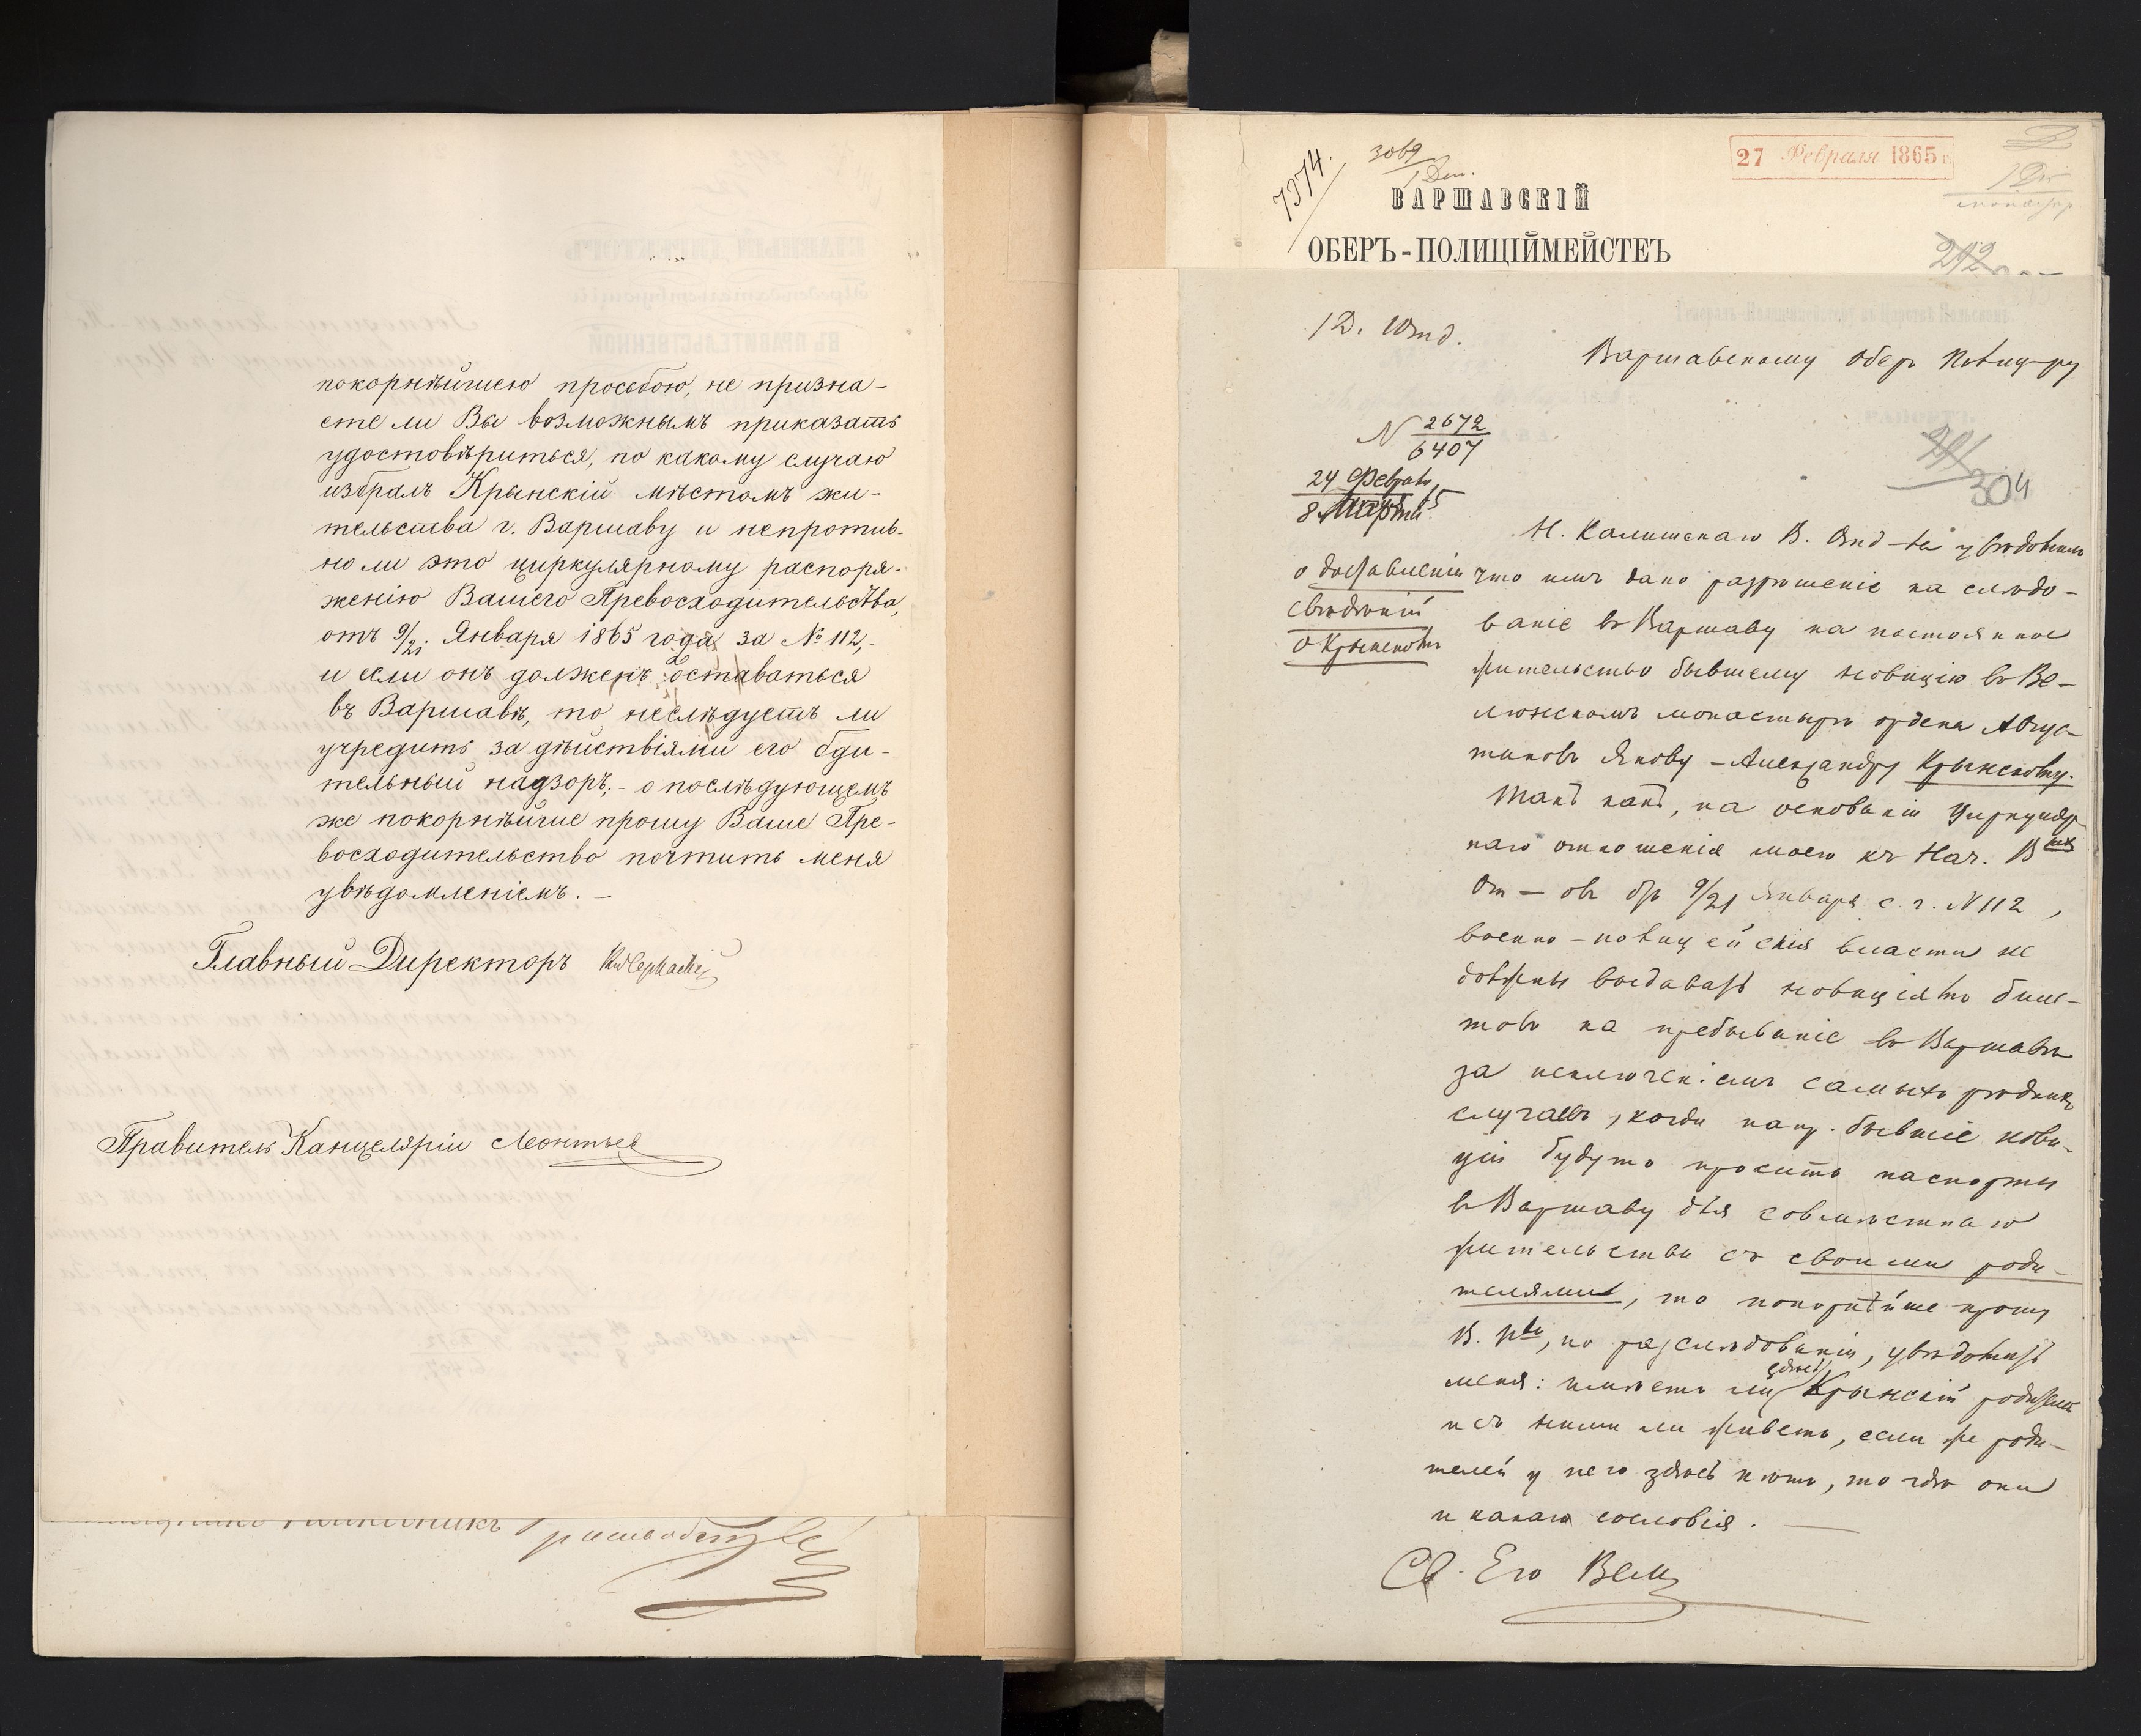 покорнѣйшею просьбою, не призна-
ете ли Вы возможнымъ приказать
удостовѣриться, по какому случаю
избралъ Крынскій мѣстомъ жи-
тельства г. Варшаву и непротив-
но ли это циркулярному распоря-
женію Вашего Превосходительства,
отъ 9/21 Января 1865 года за № 112,-
и если онъ долженъ оставаться
въ Варшавѣ, то неслѣдуетъ ли
учредить за дѣйствіями его бди-
тельный надзоръ;- о послѣдующемъ
же покорнѣйше прошу Ваше Пре-
восходительство почтить меня
увѣдомленіемъ. —
Главный Директоръ
Правитель Канцеляріи Леонтьев
7374.
3069
1 Деп.
27 Февраля 1865 г.
ВАРШАВСКІЙ
ОБЕРЪ-ПОЛИЦІЙМЕЙСТЕЪ
212
1 Д. Отд.
Варшавскому Обер Полиц-ру
N 2672
6407
24 Февраля
8 Марта 65
291
304
о доставленіи
свѣдѣній
о Крынскомъ
Н. Калишскаго В. Отд-ла увѣдомилъ
что имъ дано разрѣшеніе на слѣдо-
ваніе въ Варшаву на постоянное
жительство бывшему новицію въ Ве-
люнскомъ монастырѣ ордена Авгус-
тиновъ Якову-Александру Крынскому.
Такъ какъ, на основаніи Циркуляр-
наго отношенія моего къ Нач. В
От-овъ отъ 9/21 Января с. г. N 112,
военно-полицейскія власти не
должны выдавать новиціямъ биле-
товъ на пребываніе въ Варшавѣ
за исключеніемъ самыхъ рѣдкихъ
случаевъ, когда напр. бывшіе нови-
ціи будутъ просить паспорты
в Варшаву для совмѣстнаго
жительства съ своими роди-
телями, то покорнѣйше прошу
В. П., по разслѣдованіи, увѣдомить
меня: имѣетъ ли здѣсь Крынскій родителей
и съ ними ли живетъ, если же роди-
телей у него здѣсь нѣтъ, то гдѣ они
и какаго сословія. —
Св. Его Вел